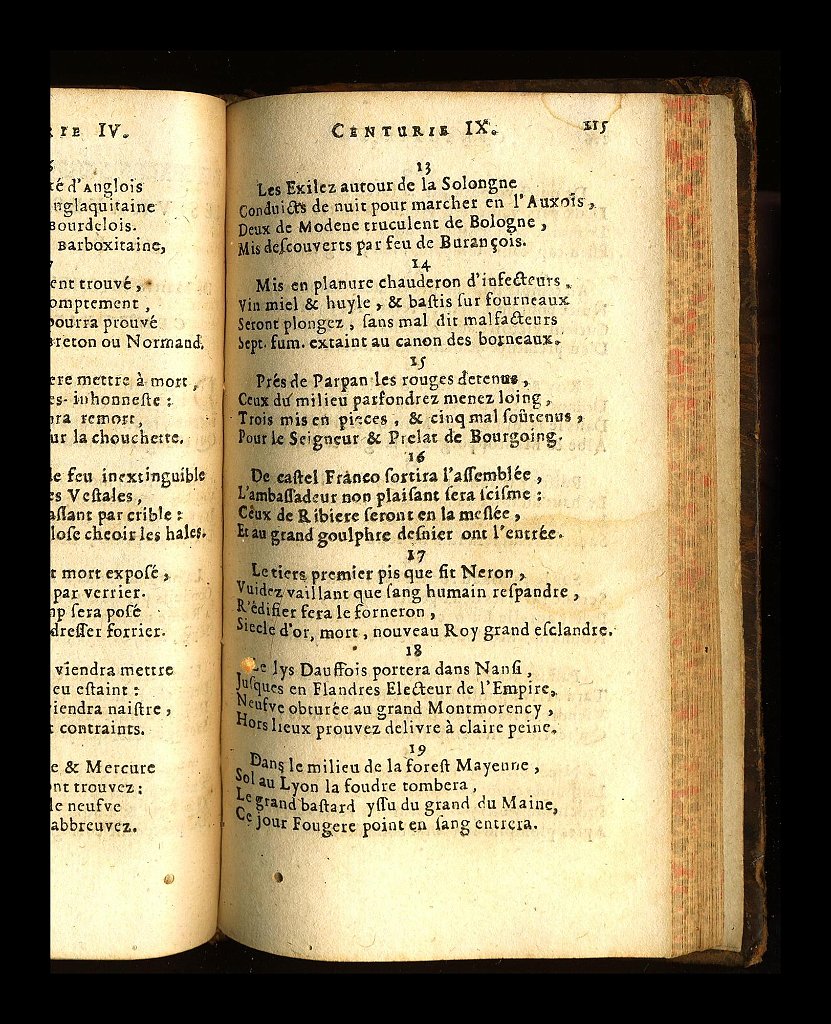 IV.
té d'Anglois
nglaquitaine
Bourdelois.
Barboxitaine,
ent trouvé,
omptement,
pourra prouvé
Breton ou Normand.
ere mettre à mort,
es- inhonneste :
ra remort,
ur la chouchette.
le feu inextinguible
es Vestales,
assant par crible :
lose cheoir les hales.
t mort exposé,
par verrier.
mp sera posé
dresser forrier.
viendra mettre
eu estaint :
viendra naistre,
t contraints.
e & Mercure
nt trouvez :
le neufve
abbreuvez.
CENTURIE IX. 215
13
Les Exilez autour de la Solongne
Conduicts de nuit pour marcher en l'Auxois,
Deux de Modene truculent de Bologne,
Mis descouverts par feu de Burançois.
14
Mis en planure chauderon d'infecteurs,
Vin miel & huyle, & bastis sur fourneaux
Seront plongez, sans mal dit malfacteurs
Sept. fum. extaint au canon des borneaux.
15
Prés de Parpan les rouges detenus,
Ceux du milieu parfondrez menez loing,
Trois mis en pieces, & cinq mal soûtenus,
Pour le Seigneur & Prelat de Bourgoing.
16
De castel Franco sortira l'assemblée,
L'ambassadeur non plaisant fera scisme :
Ceux de Ribiere seront en la meslée,
Et au grand goulphre desnier ont l'entrée.
17
Le tiers premier pis que fit Neron,
Vuidez vaillant que sang humain respandre,
R'édifier fera le forneron,
Siecle d'or, mort, nouveau Roy grand esclandre.
18
Le lys Dauffois portera dans Nansi,
Jusques en Flandres Electeur de l'Empire,
Neufve obturée au grand Montmorency,
Hors lieux prouvez delivre à claire peine.
19
Dans le milieu de la forest Mayenne,
Sol au Lyon la foudre tombera,
Le grand bastard yssu du grand du Maine,
Ce jour Fougere point en sang entrera.